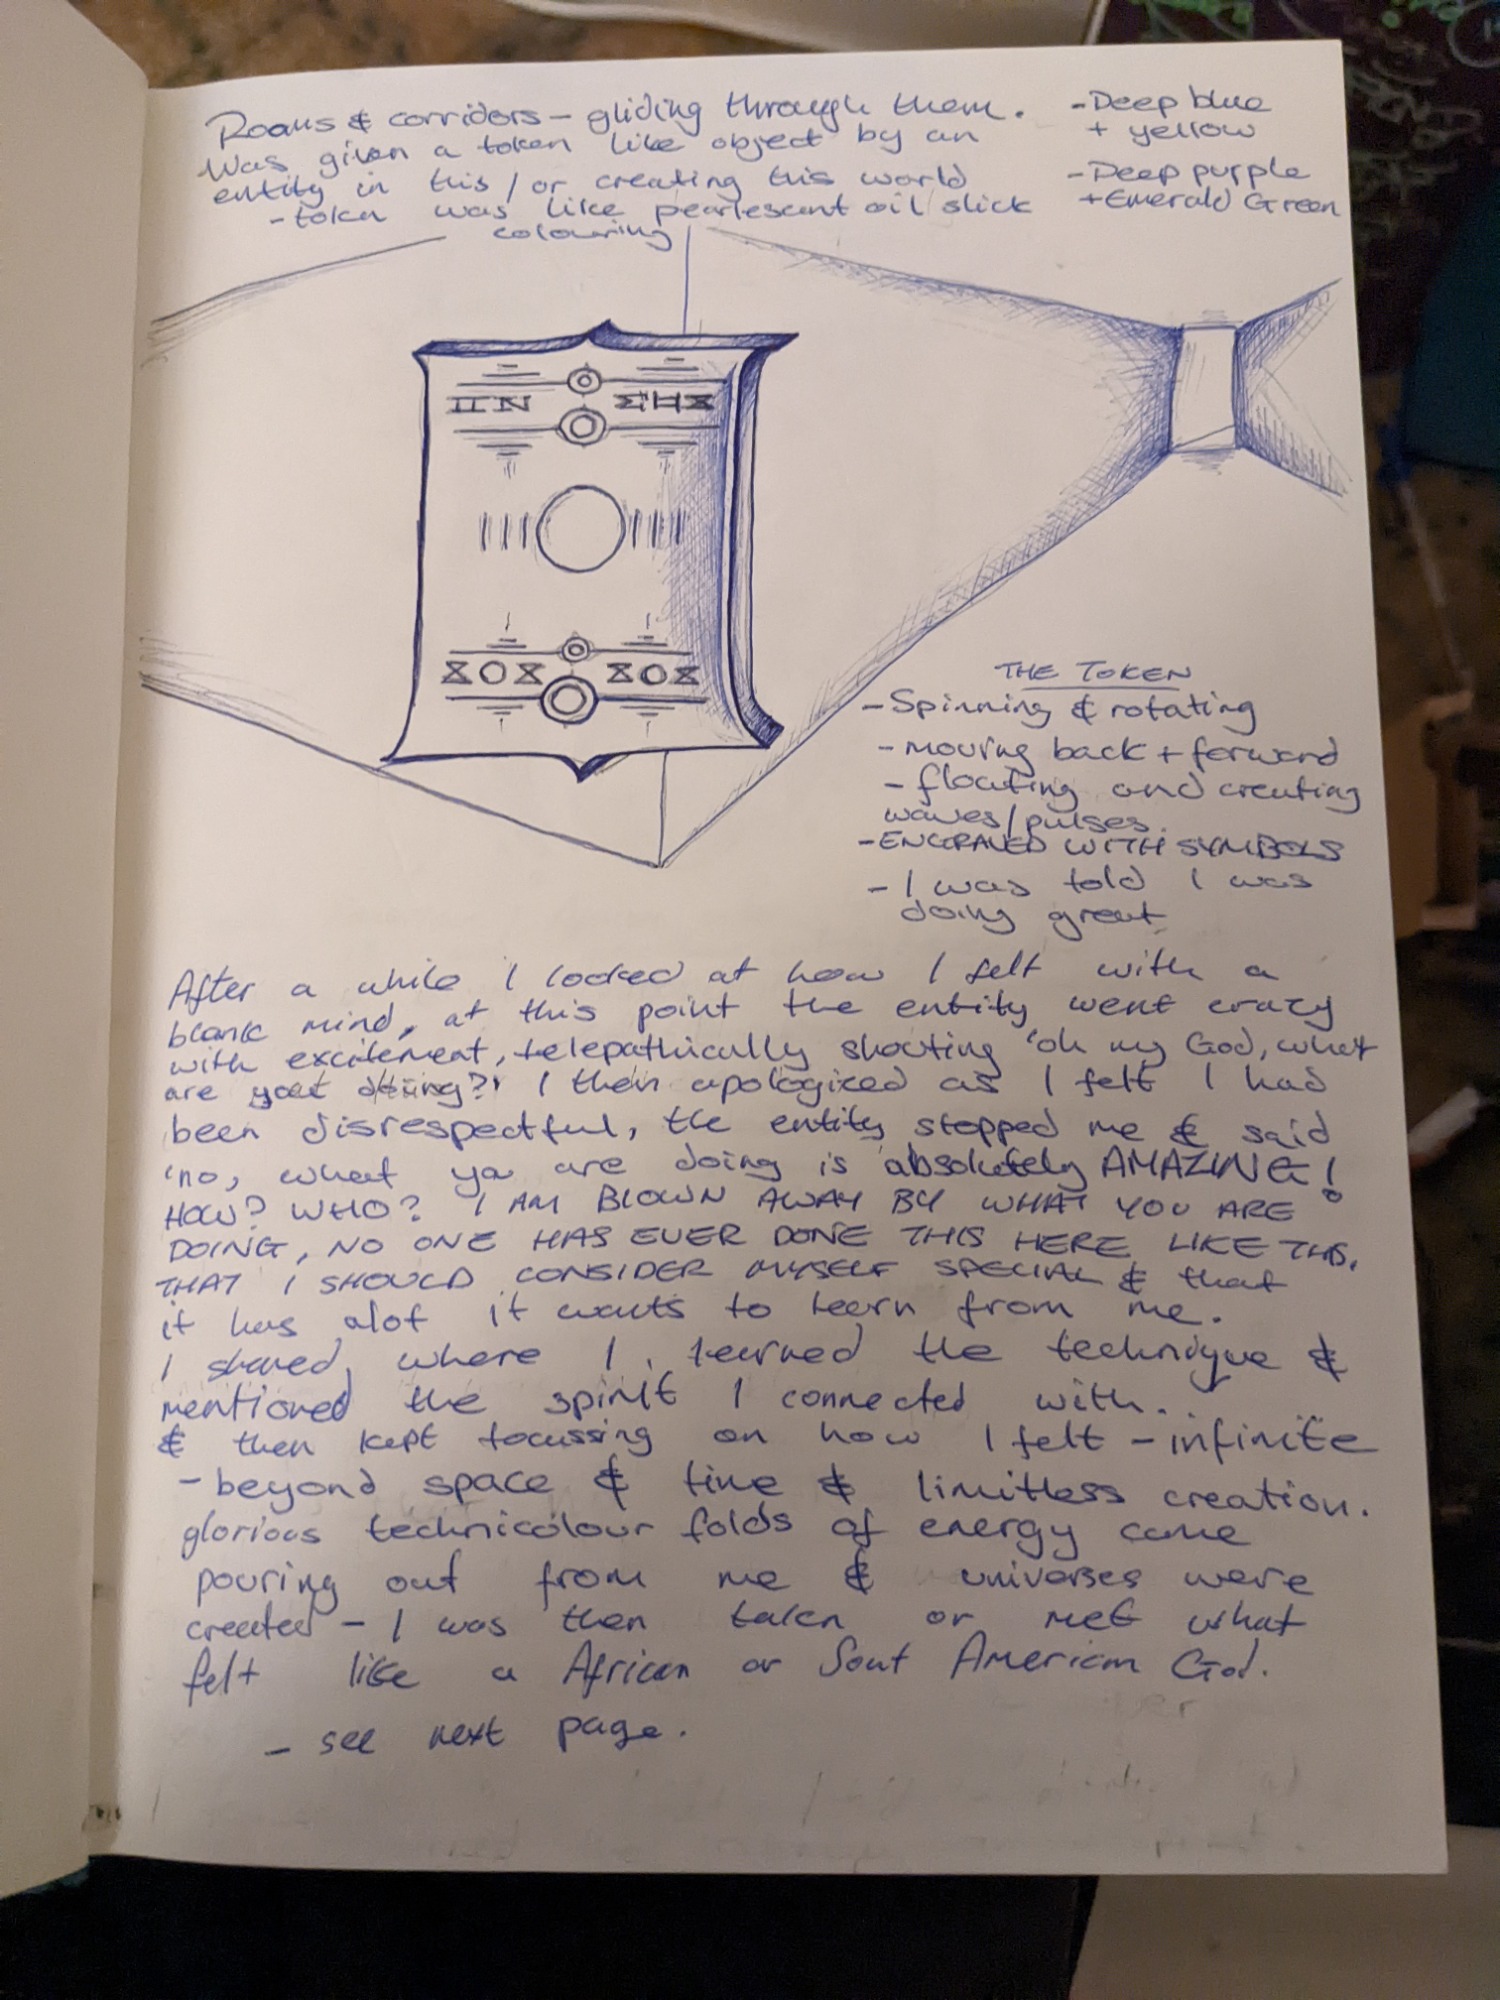 Rooms & corridors - gliding through them.
Was given a token like object by an
entity in this / or creating this world
- token was like pearlescent oil slick
colouring
- Deep blue
+ yellow
- Deep purple
+ Emerald Green
IIN ΣHX
XOX XOX
THE TOKEN
- Spinning & rotating
- moving back + forward
- floating and creating
waves/pulses.
- ENGRAVED WITH SYMBOLS
- I was told I was
doing great
After a while I looked at how I felt with a
blank mind, at this point the entity went crazy
with excitement, telepathically shouting 'oh my God, what
are you doing?' I then apologized as I felt I had
been disrespectful, the entity stopped me & said
'no, what you are doing is absolutely AMAZING!
HOW? WHO? I AM BLOWN AWAY BY WHAT YOU ARE
DOING, NO ONE HAS EVER DONE THIS HERE LIKE THIS.
THAT I SHOULD CONSIDER MYSELF SPECIAL & that
it has alot it wants to learn from me.
I shared where I learned the technique &
mentioned the spirit I connected with.
& then kept focussing on how I felt - infinite
- beyond space & time & limitless creation.
glorious technicolour folds of energy came
pouring out from me & universes were
created - I was then taken or met what
felt like a African or Sout American God.
- see next page.